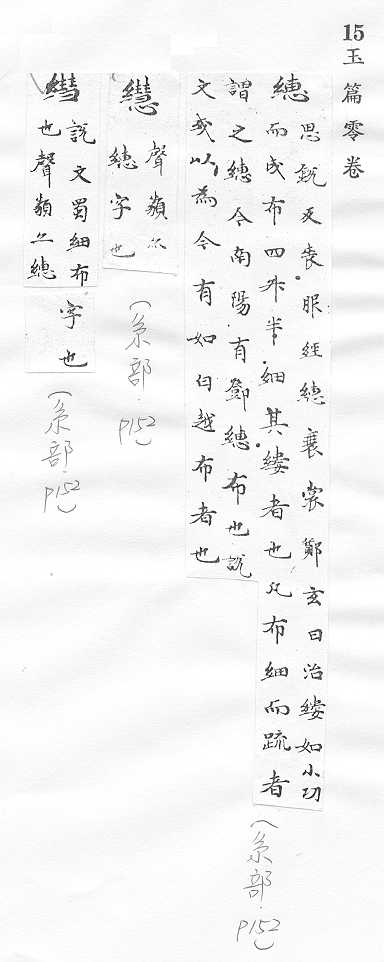 15 玉篇零卷
繐
思銳反喪服經繐衰裳鄭玄曰治縷如小功
而成布四升半細其縷者也凡布細而疏者
謂之繐今南陽有鄧繐布也說
文或以為今有如白越布者也
(糸部.P152)
聲類亦
繐字也
(糸部.P152)
說文蜀細布
也聲類亦繐
字也
(糸部.P152)